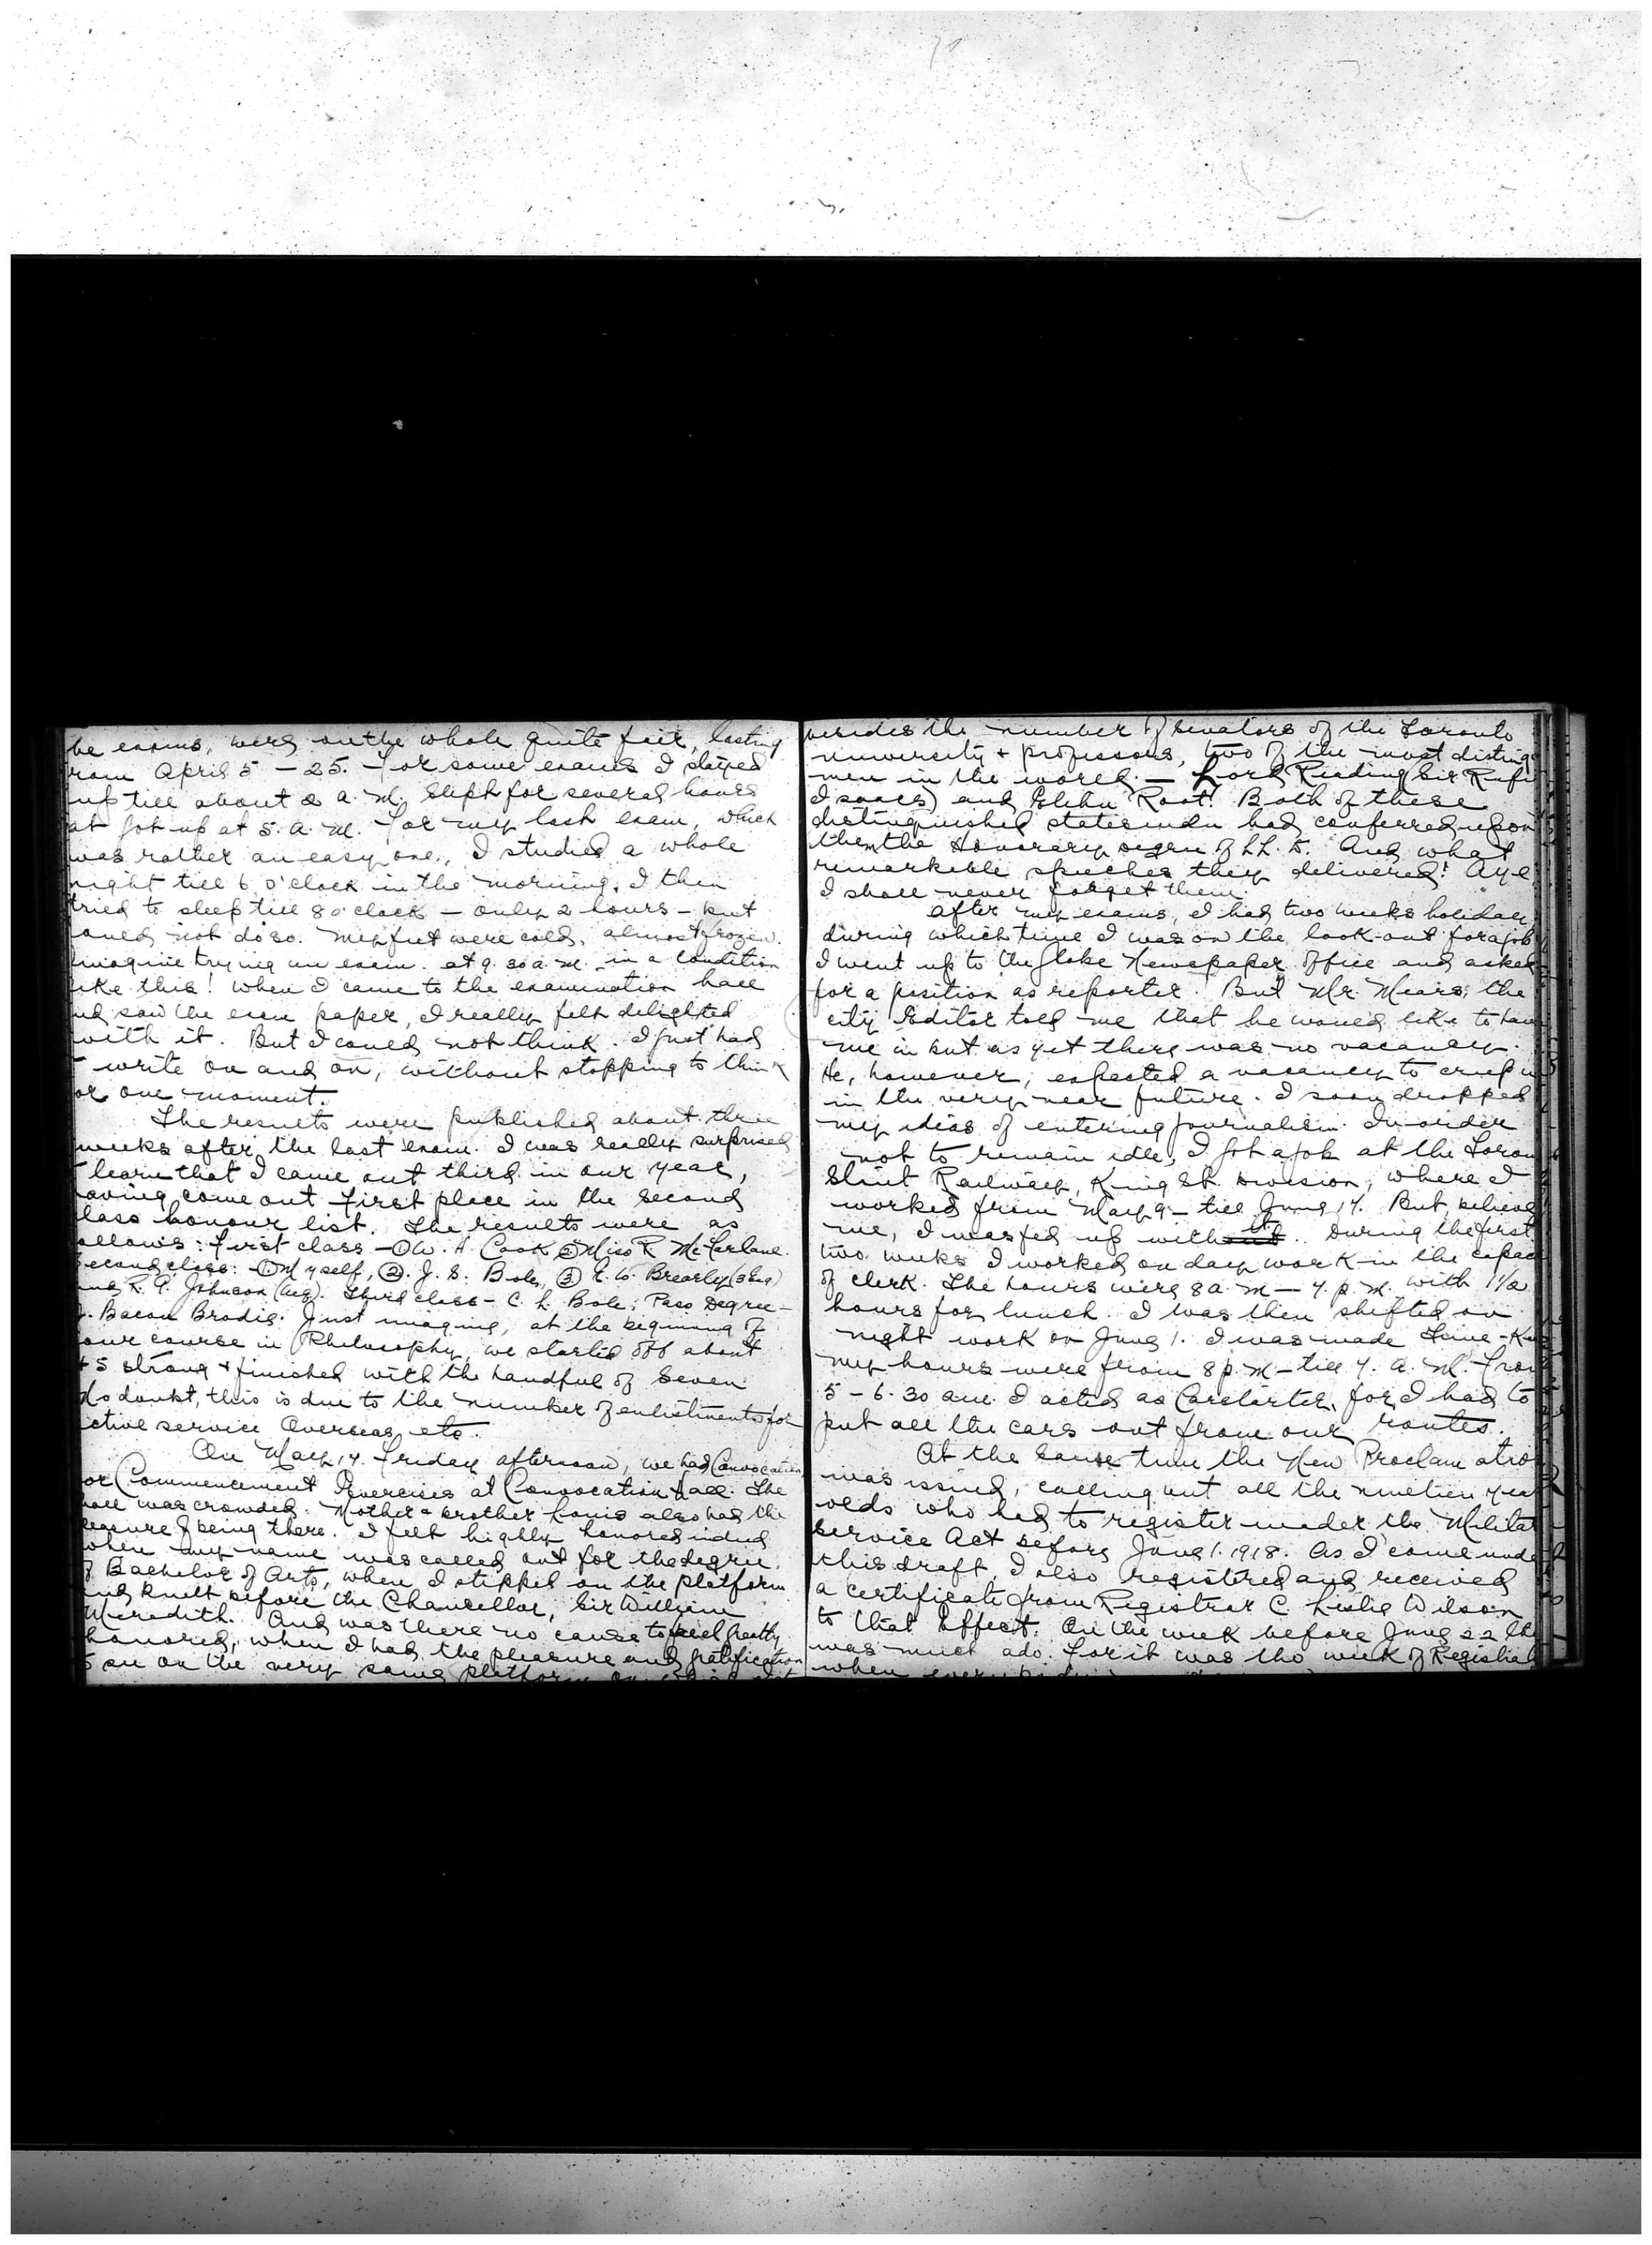 he exams, were on the whole quite fair, lasting
rom April 5 - 25. For some exams I stayed
up till about 2 a.m. Slept for several hours
at got up at 5. a. m. For my last exam, which
was rather an easy one, I studied a whole
night till 6 o'clock in the morning. I then
tried to sleep till 8 o'clock - only 2 hours - but
ould not do so. My feet were cold, almost frozen.
magine trying an exam. at 9.30 a.m. in a condition
ike this! When I came to the examination hall
nd saw the exam paper, I really felt delighted
with it. But I could not think. I just had
write on and on, without stopping to think
or one moment.
The results were published about three
weeks after the last exam. I was really surprised
learn that I came out third in our year,
aving come out first place in the second
lass honour list. The results were as
ollows: First class - ① W. A. Cook ② Miss R. McFarlane.
Second class: ① Myself, ②. J. S. Bole, ③ E. W. Brearly
and R. G. Johnson (aeg). Third class - C. L. Bole; Pass Degree -
J. Bacon Brodie. Just imagine, at the beginning of
our course in Philosophy, we started off about
45 strong & finished with the handful of seven
No doubt, this is due to the number of enlistments for
ctive service Overseas, etc.
On May 17. Friday afternoon, we had Convocation
or Commencement Exercises at Convocation Hall. The
hall was crowded. Mother & brother Louis also had the
leasure of being there. I felt highly honored indeed
when my name was called out for the degree
of Bachelor of Arts, when I stepped on the platform
and knelt before the Chancellor, Sir William
Meredith. And was there no cause to feel greatly
honored, when I had the pleasure and gratification
to see on the very same platform on which sat
besides the number of senators of the Toronto
university & professors, two of the most disting
men in the world. - Lord Reading (Sir Rufu
Isaacs) and Elihu Root! Both of these
distinguished statesmen had conferred upon
them the Honorary degree of LL. D. And what
remarkable speeches they delivered! Aye
I shall never forget them.
After my exams, I had two weeks holiday
during which time I was on the look-out for a job
I went up to the Globe Newspaper office and asked
for a position as reporter. But Mr. Mears, the
city Editor told me that he would like to have
me in but as yet there was no vacancy.
He, however, expected a vacancy to creep in
in the very near future. I soon dropped
my ideas of entering journalism. In order
not to remain idle, I got a job at the Toron
Street Railway, King St. Division, where I
worked from May 9 - till June 17. But, believe
me, I was fed up with it. During the first
two weeks I worked on day work in the capac
of clerk. The hours were 8 a. m - 7. p. m. with 1 1/2
hours for lunch. I was then shifted on
night work on June 1. I was made Time-Kee
my hours were from 8 p. m - till 7. a. m. From
5 - 6.30 am. I acted as Carstarter, for I had to
put all the cars out from our routes.
At the same time the New Proclamation
was issued, calling out all the nineteen year
olds who had to register under the Militar
Service Act before June 1. 1918. As I came unde
this draft, I also registered and received
a certificate from Registrar C. Leslie Wilson
to that Effect. On the week before June 22 the
was much ado. For it was the week of Registrat
when everybody